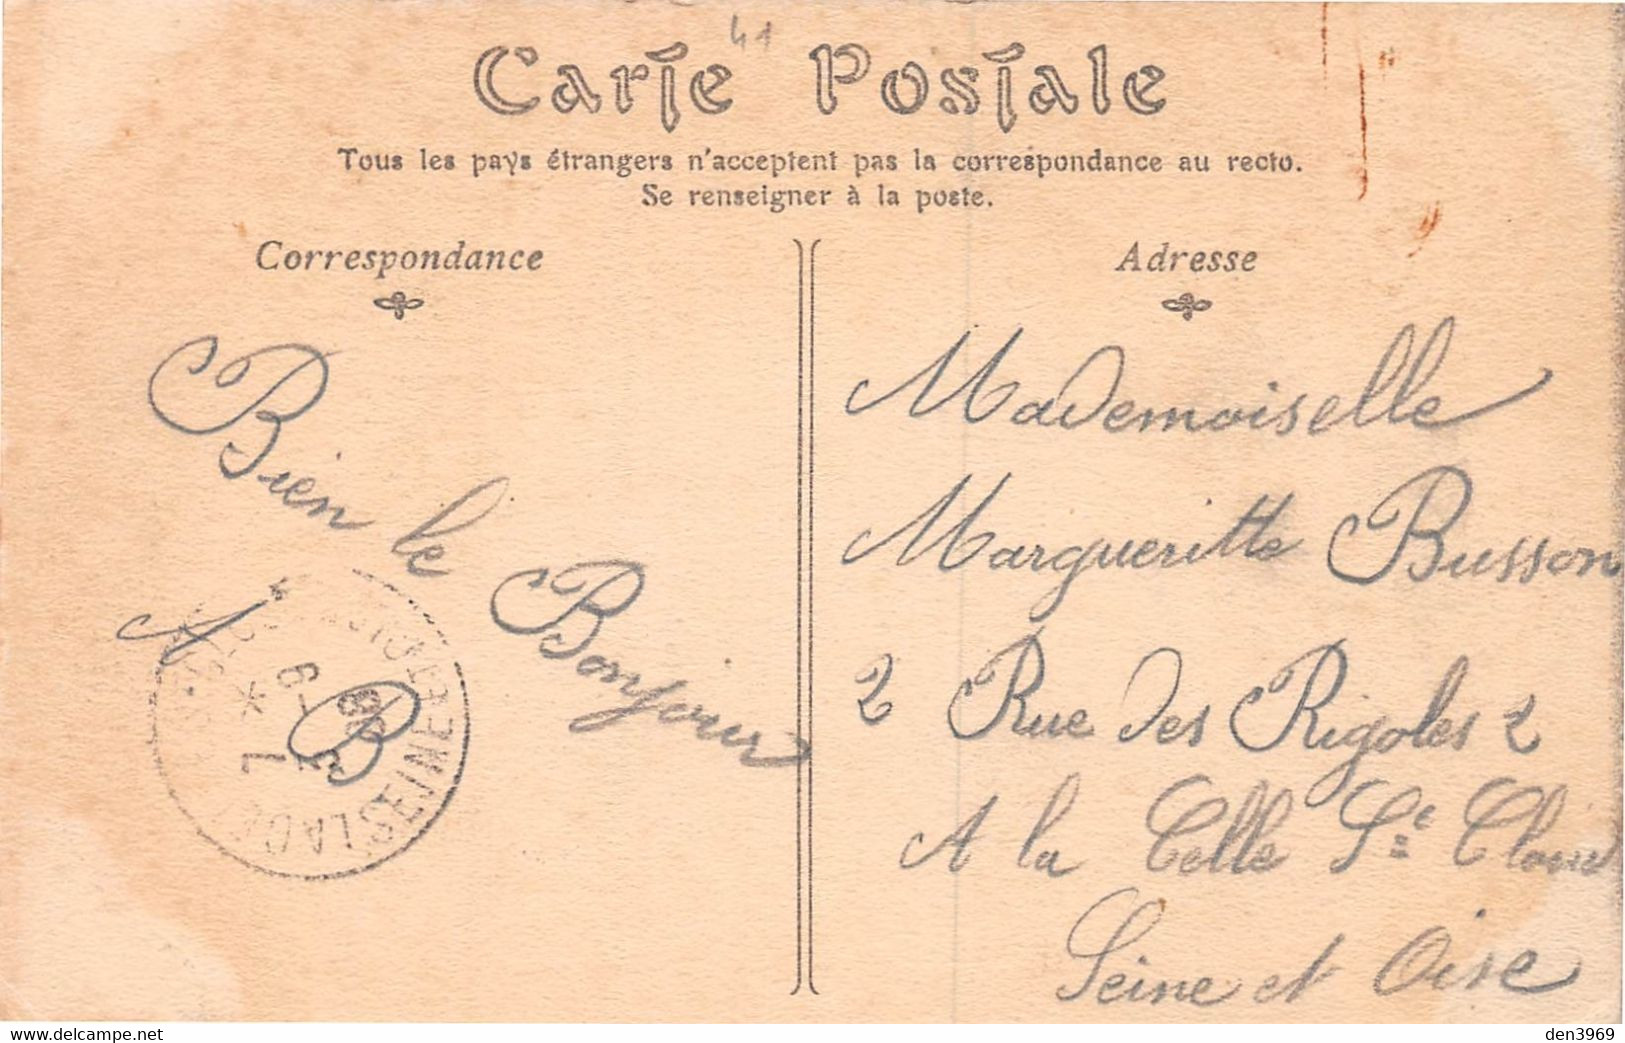 41
Carte Postale
Tous les pays étrangers n'acceptent pas la correspondance au recto.
Se renseigner à la poste.
Correspondance
Bien le Bonjour
A B
SEINE
8
6
7
Adresse
Mademoiselle
Margueritte Busson
2 Rue des Rigoles 2
A la Celle St Cloud
Seine et Oise
delcampe.net
den3969